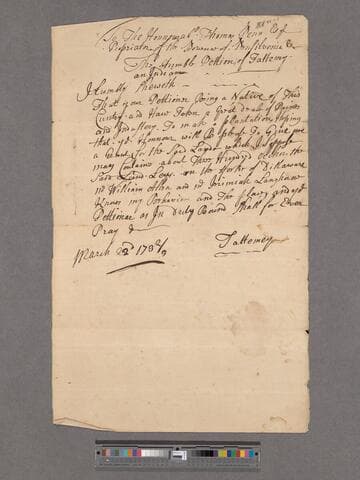 To The Honnourable Thomas Penn Esqr
Propriator of the Provance of Pensilvenia &c
The Humble Petition of Tattemy
an Indian
Humbly Sheweth
That your Petitioner being a Native of This
Cuntry and Have Taken a Great deal of Paines
and Industory To make a plantation Hoping
that yr Honnour will Be pleased To Give me
a for the Said Land which I Suppose
may Contains about Three Hundred Acres. the
Said Land Leys on the Northe of Dillaware
Mr William Allen and Mr Jeremiah Langhorn
Knows my Behavior and The place and yr
Petitioner as In duty Bound Shall for Ever
Pray &
March 22d 173 Tattemey